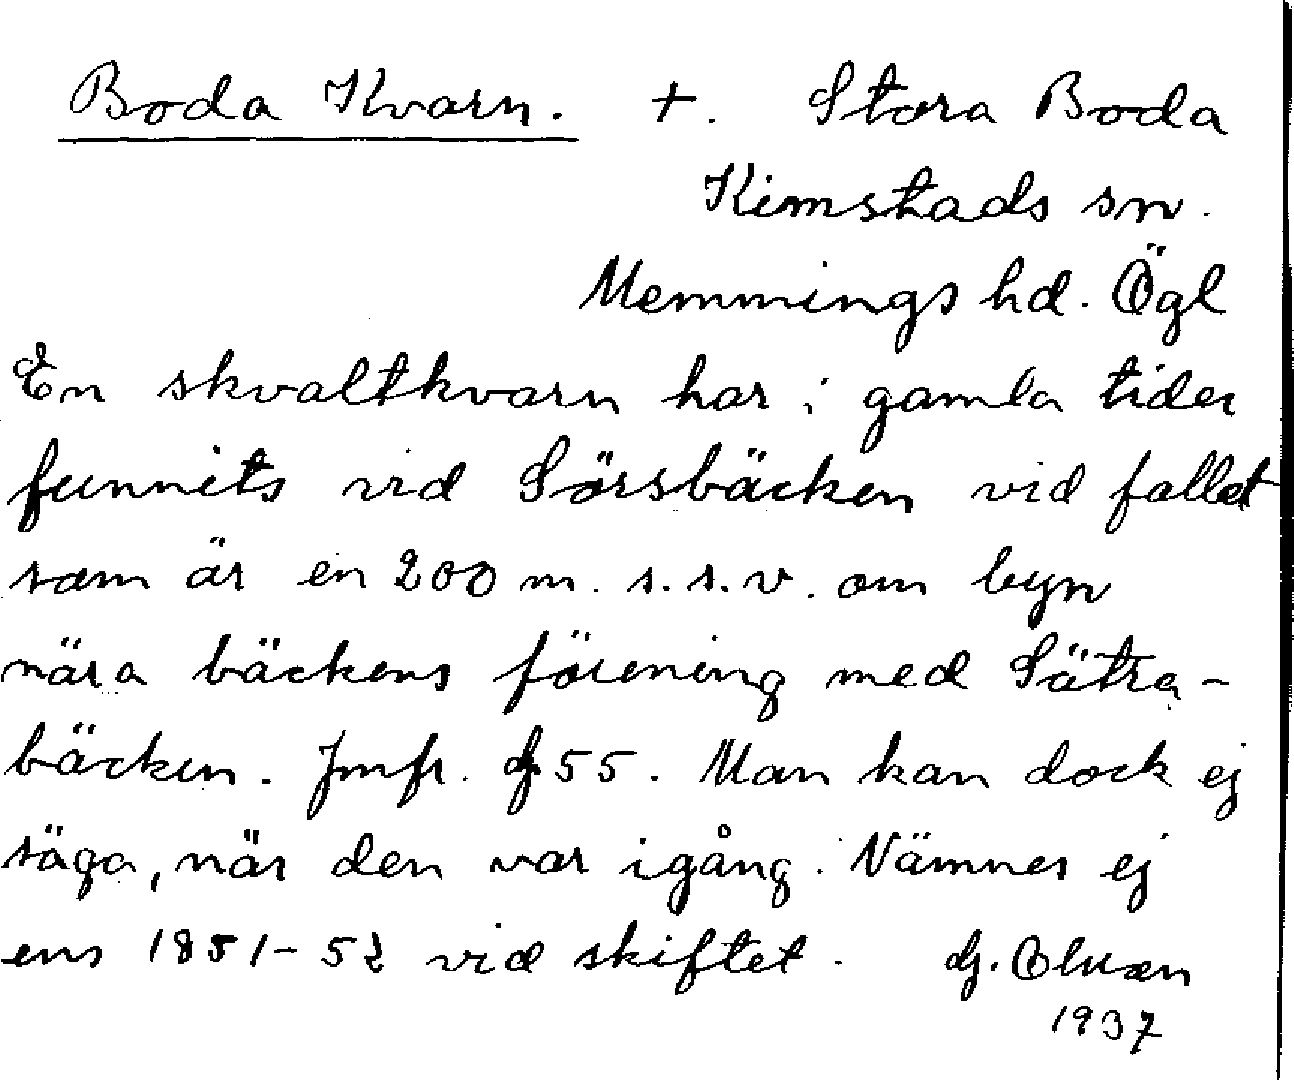 Boda Kvarn. +. Stora Boda
Kimstads sn.
Memmings hd. Ögl
En skvaltkvarn har i gamla tider
funnits vid Sörsbäcken vid fallet
som är en 200 m. s.s.v. om byn
nära bäckens förening med Sätra-
bäcken. Jmfr. 55. Man kan dock ej
säga, när den var igång. Nämnes ej
ens 1851-52 vid skiftet. G.
1937